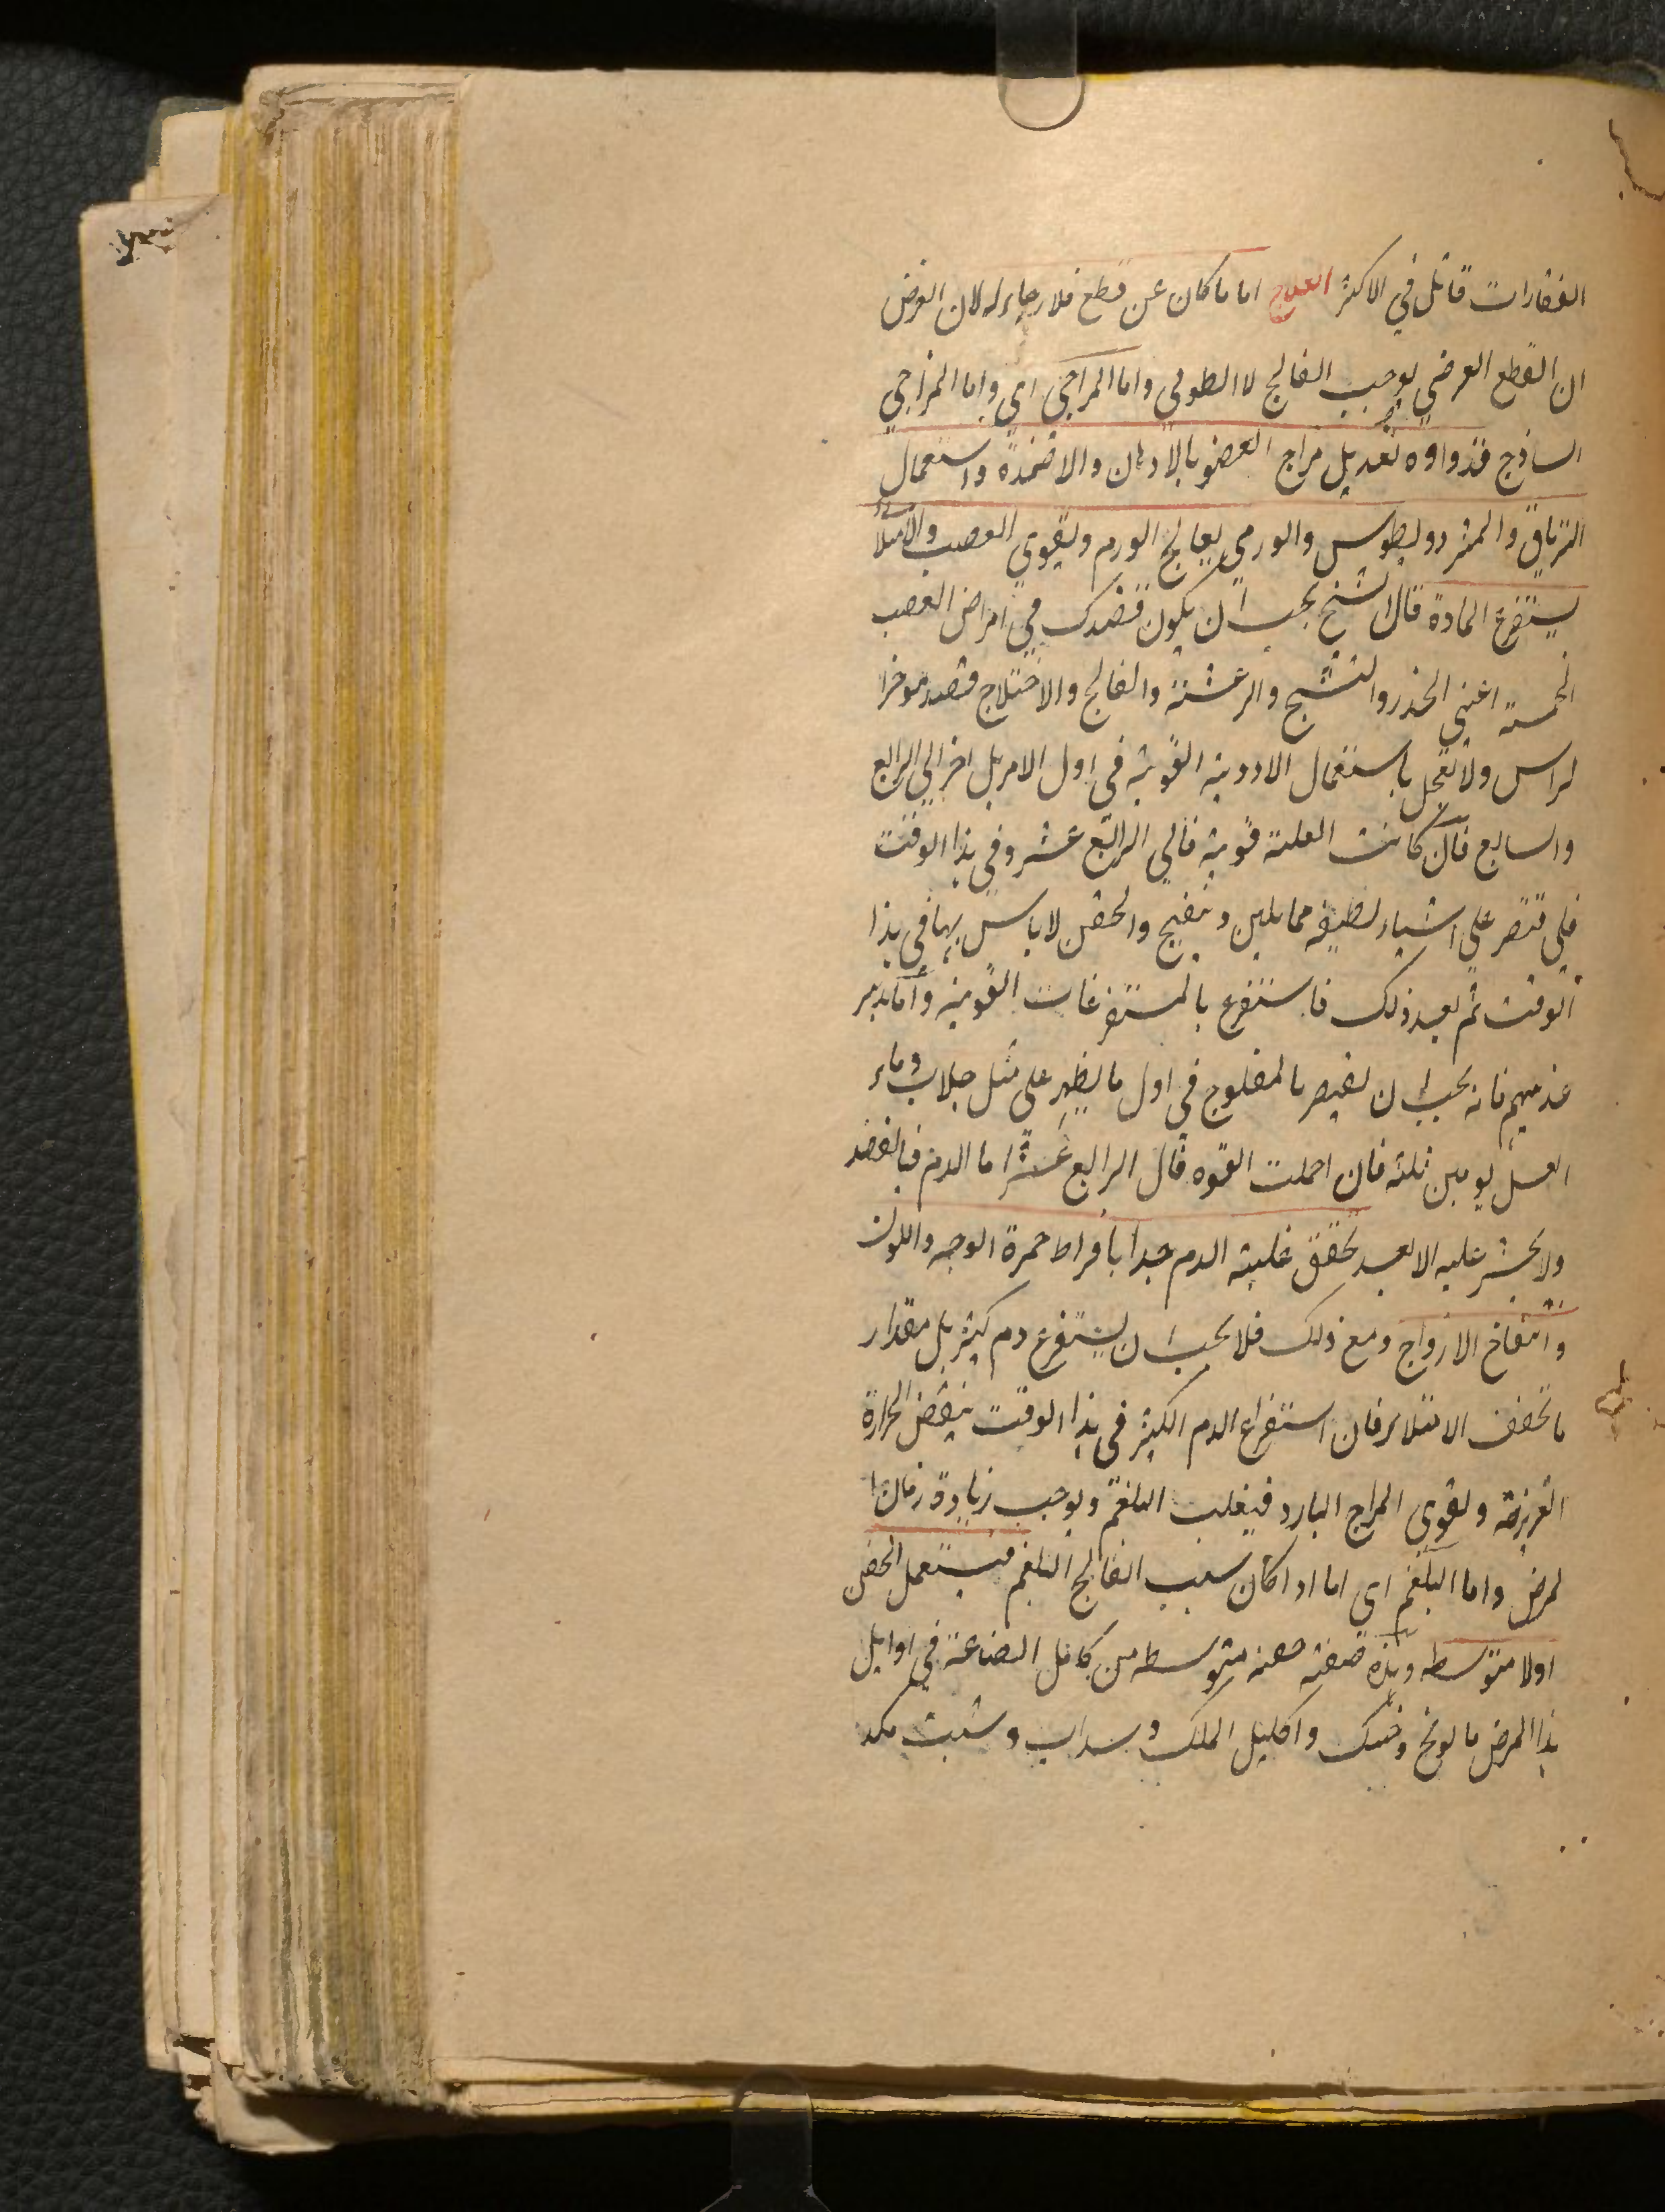 الفقارات قاتل في الاكثر العلاج اما ما كان عن قطع فلا رجاء له لان الغرض
ان القطع العرضي يوجب الفالج لا الطولي واما المزاجي اي واما المزاجي
الساذج فدواوه تعديل مزاج العضو بالادهان والاضمدة واستعمال
الترياق والمثرود يطوس والورمي يعالج الورم ويقوي العصب والامتلاء
يستفرغ المادة قال الشيخ يجب ان يكون قصدك في امراض العصب
الخمسة اعني الخدر والتشنج والرعشة والفالج والاختلاج قصد موخر ا
لراس ولا تعجل باستعمال الادوية القوية في اول الامر بل اخر الي الرابع
والسابع فان كانت العلة قوية فالي الرابع عشر وفي هذا الوقت
فليقتصر علي اشياء لطيفة مما يلين وينضج والحقن لا باس بها في هذا
الوقت ثم بعد ذلك فاستفرغ بالمستفرغات القوية واما تدبير
غذييهم فانه يجب ان تقتصر بالمفلوج في اول ما يظهر علي مثل جلاب وماء
العسل يومين ثلثة فان احملت القوه قال الرابع عشر اما الدم فبالفصد
ولا يجسر عليه الا بعد تحقق غلبة الدم جدا بافراط حمرة الوجه واللون
وانتفاخ الازواج ومع ذلك فلا يجب ان يستفرغ دم كثير بل مقدار
ما يخفف الامتلاء فان استفراغ الدم الكثير في هذا الوقت ينقض الحرارة
الغريزية ويقوي المزاج البارد فيغلب البلغم ويوجب زيادة زمان ا
لمرض واما البلغم اي اما اذا كان سبب الفالج البلغم فيستعمل الحقن
اولا متوسطه وهذه صفة حقنه متوسطه من كامل الصناعة في اوايل
هذا المرض بابونج وخسك واكليل الملك وسداب وشبث مكد